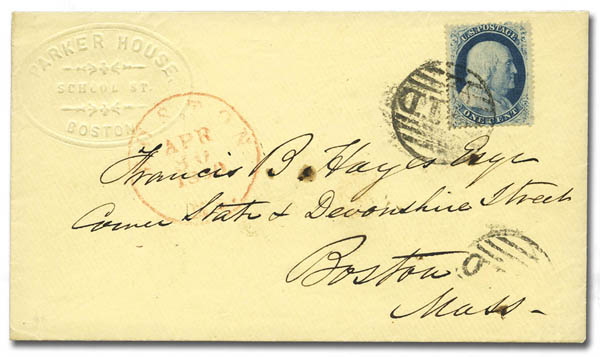 PARKER HOUSE.
SCHOOL ST.
BOSTON
U.S. POSTAGE
ONE CENT
BOSTON
APR
30
Francis B. Hayes Esqr
Corner State & Devonshire Street
Boston
Mass-